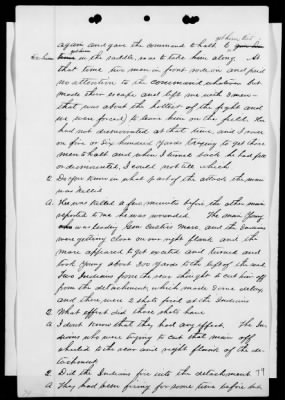 get him, but
again and gave the command to halt to
to him in the saddle, so as to take him along. At
that time two men in front rode on and paid
no attention to the command whatever but
made their escape and left me with 2 men -
that was about the hottest of the fight and
we were forced to leave him on the field. He
had not dismounted at that time, and I rode
on five or six hundred yards trying to get those
men to halt and when I came back he had got
or dismounted, I could not tell which
Q. Do you know in what part of the attack the man
was killed
A. He was killed a few minutes before, the other man
reported to me he was wounded. The man Young
was leading Gen Custer's Mare, and the Indians
were getting close on our right flank and the
mare appeared to get excited and turned and
took Young about 200 yards to the left of the road
Two Indians from the rear thought to cut him off
from the detachment, which made some delay
and there were 2 shots fired at the Indians
Q. What effect did those shots have
A. I don't know that they had any effect. The In-
dians who were trying to cut that man off
shifted to the rear and right flank of the de-
tachment.
Q. Did the Indians fire into the detachment
A. They had been firing for some time before but
79